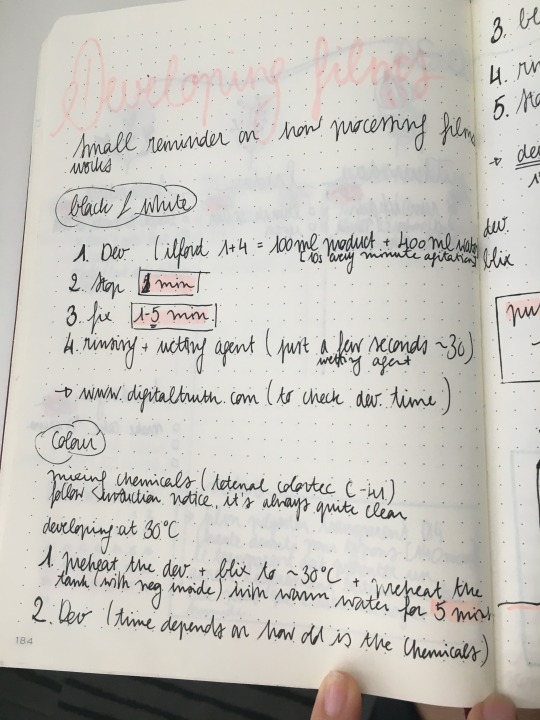 Developing films
Small reminder on how processing films
works
black & white
1. Dev (ilford 1+4 = 100ml product + 400ml water
(10s every minute agitation)
2. Stop 1 min
3. fix 1-5 min.
4. rinsing + wetting agent (just a few seconds ~30)
wetting agent
→ www.digitaltruth.com (to check dev time)
Colour
mixing chemicals (tetenal colortec C-41)
follow instruction notice, it's always quite clear
developing at 30°C
1. preheat the dev + blix to ~30°C + preheat the
tank (with neg inside) with warm water for 5 mins
2. Dev (time depends on how old is the chemicals)
184
3. bl
4. rin
5. Sta
→ de
dev.
blix